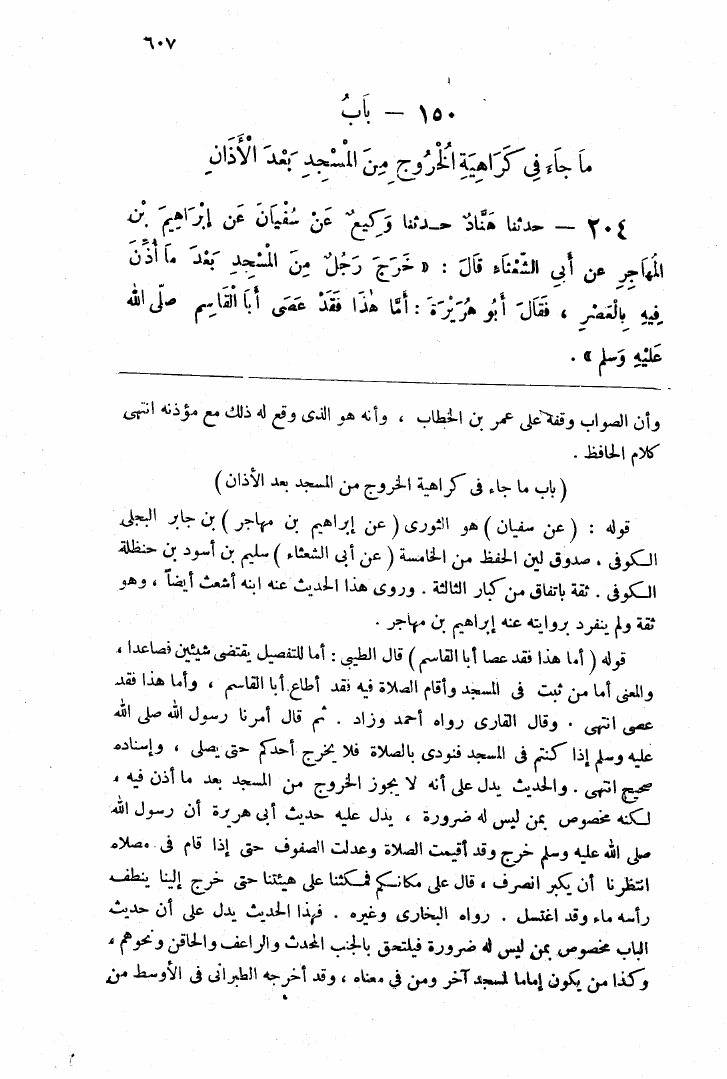 ٦٠٧
١٥٠ – بَابُ
مَا جَاءَ فِي كَرَاهِيَةِ الْخُرُوجِ مِنَ الْمَسْجِدِ بَعْدَ الْأَذَانِ
٢٠٤ – حدثنا هَنَّادٌ حدثنا وَكِيعٌ عَنْ سُفْيَانَ عَن إبْرَاهِيمَ بْنِ
الْمُهَاجِرِ عن أَبِي الشَّعْثَاءِ قَالَ : « خَرَجَ رَجُلٌ مِنَ الْمَسْجِدِ بَعْدَ مَا أُذِّنَ
فِيهِ بِالْعَصْرِ ، فَقَالَ أَبُو هُرَيْرَةَ : أَمَّا هٰذَا فَقَدْ عَصَى أَبَا الْقَاسِمِ صلّى الله
عَلَيْهِ وَسلم » .
وأن الصواب وقفه على عمر بن الخطاب ، وأنه هو الذى وقع له ذلك مع مؤذنه انتهى
كلام الحافظ .
( باب ما جاء فى كراهية الخروج من المسجد بعد الأذان )
قوله : ( عن سفيان ) هو الثورى ( عن إبراهيم بن مهاجر ) بن جابر البجلى
الكوفى ، صدوق لين الحفظ من الخامسة ( عن أبى الشعثاء ) سليم بن أسود بن حنظلة
الكوفى . ثقة باتفاق من كبار الثالثة . وروى هذا الحديث عنه ابنه أشعث أيضاً ، وهو
ثقة ولم ينفرد بروايته عنه إبراهيم بن مهاجر .
قوله ( أما هذا فقد عصا أبا القاسم ) قال الطيبى : أما للتفصيل يقتضى شيئين فصاعدا ،
والمعنى أما من ثبت فى المسجد وأقام الصلاة فيه نقد أطاع أبا القاسم ، وأما هذا فقد
عصى انتهى . وقال القارى رواه أحمد وزاد . ثم قال أمرنا رسول الله صلى الله
عليه وسلم إذا كنتم فى المسجد فنودى بالصلاة فلا يخرج أحدكم حتى يصلى ، وإسناده
صحيح انتهى . والحديث يدل على أنه لا يجوز الخروج من المسجد بعد ما أذن فيه ،
لكنه مخصوص بمن ليس له ضرورة ، يدل عليه حديث أبى هريرة أن رسول الله
صلى الله عليه وسلم خرج وقد أقيمت الصلاة وعدلت الصفوف حتى إذا قام فى مصلاه
انتظرنا أن يكبر انصرف ، قال على مكانكم فمكثنا على هيئتنا حتى خرج إلينا ينطف
رأسه ماء وقد اغتسل . رواه البخارى وغيره . فهذا الحديث يدل على أن حديث
الباب مخصوص بمن ليس له ضرورة فيلتحق بالجنب المحدث والراعف والحاقن ونحوهم ،
وكذا من يكون إماما لمسجد آخر ومن في معناه ، وقد أخرجه الطبرانى فى الأوسط من